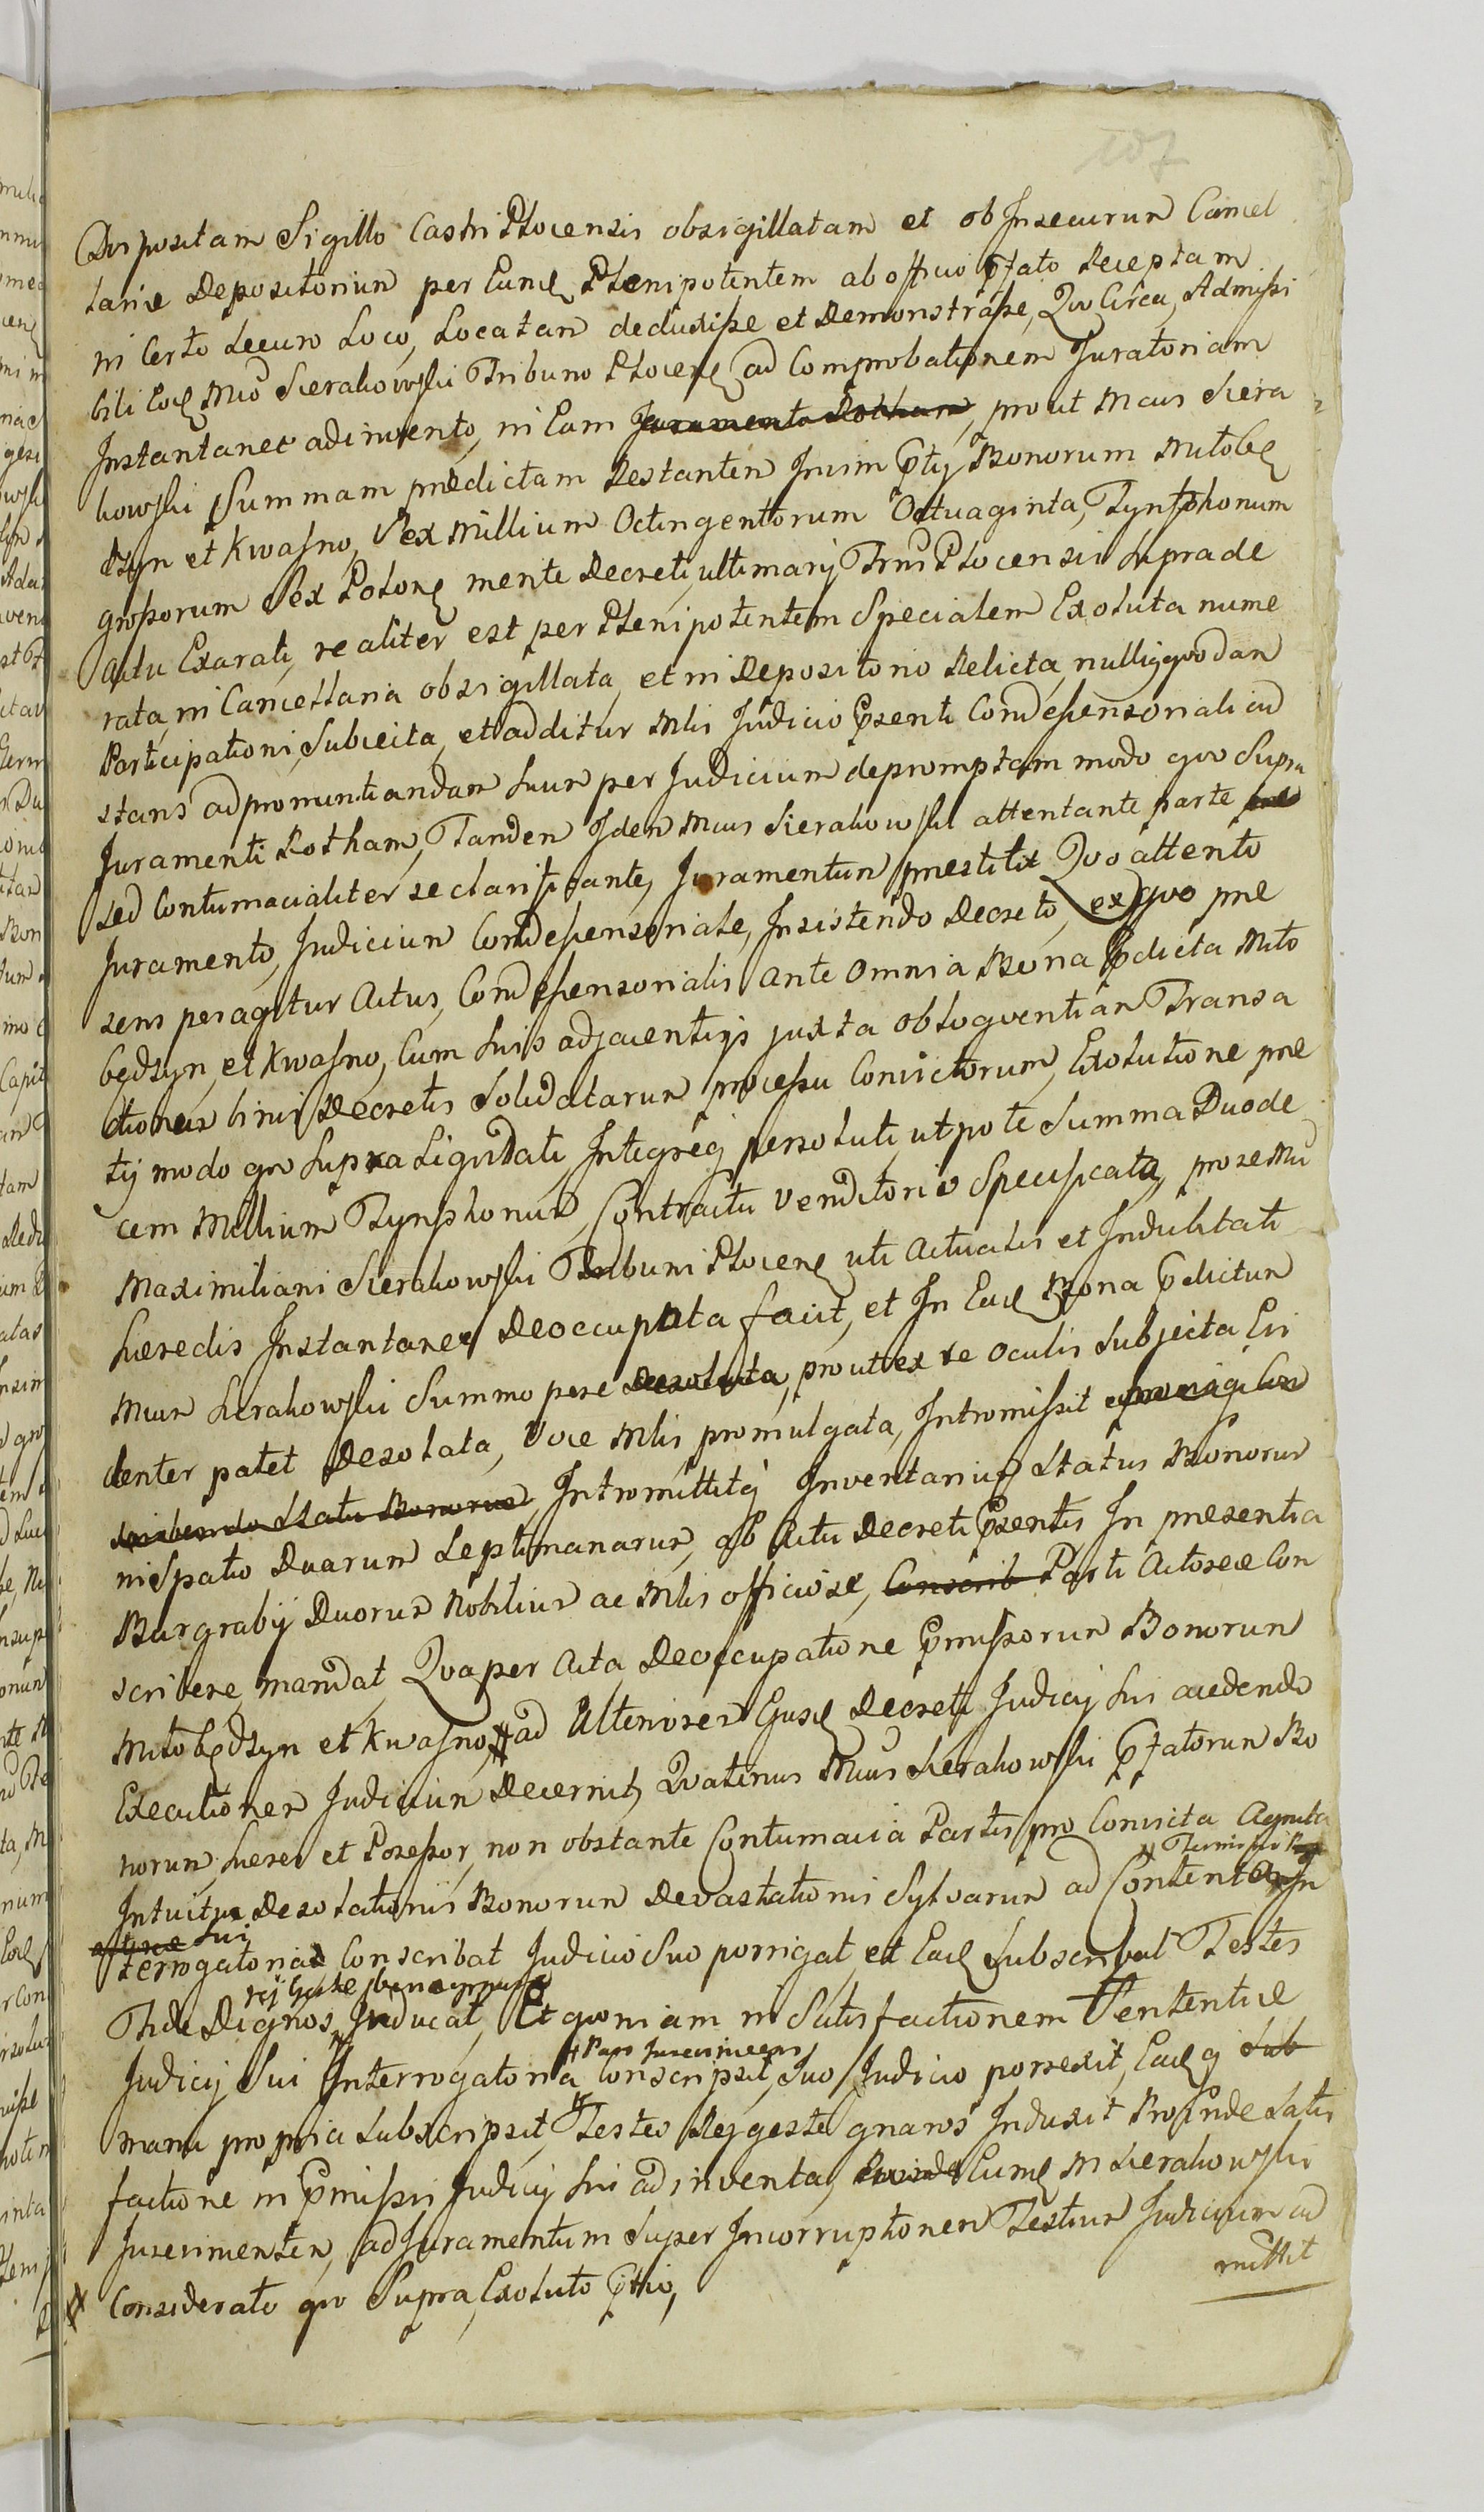 107
Depositam Sigillo Castri Plocensis obsigillatam et ob Insecurum Cancel
lariæ Depositorium per Eund Plenipotentem ab officio pfato Receptam
in Certo Securo Loco, Locatam deduxiße et Demonstraße, Quo Circa, Admißi
bili Eod Mco Sierakowski Tribuno Plocens ad Comprobationem Juratoriam
Instantanee adinvento, in Eam Juramenti Rotham, prout Mcus Siera
kowski Summam prædictam Restantem Bonorum Miłobę
dzyn et Kwasno, Sex Millium Octingentorum Octuaginta, Tynfphonum
großorum Sex Polon mente Decreti ultimarij Trni Plocensis supra de
Actu Exarati, realiter est per Plenipotentem Specialem Exoluta nume
rata, in Cancellaria obsigillata, et in Depositorio Relicta, nulliqz quodan
Participationi, Subiecta, et additur Mlis Judicio Psenti Condescensoriali ad
stans ad pronuntiandam suum per Judicium depromptam modo quo Supra
Juramenti Rotham, Tandem Idem Mcus Sierakowski attentante parte præ
sed Contumacialiter se clarificante, Juramentum præstitit Quo attento
Juramento, Judicium Condescensoriale, Insistendo Decreto, ex quo præ
sens peragitur Actus, Condescensorialis ante omnia Bona Pdicta Miło
będzyn, et Kwasno, Cum suis adjacentijs juxta obloquentian Transa
ctionem binis Decretis Solidatarum proceßu Convictorum, Exolutione præ
tij modo quo supra Liquidati, Integreq persoluti, utpote Summa Duode
cem Millium Tynphonum, Contractu Venditorio Specificata, pro se Mci
Maximiliani Sierakowski Tribuni Plocens uti Actualis et Indubitati
hæredis Instantanee Deoccupata facit, et In Ead Bona Pdictum
Mcum Sierakowski Summopere Dezolata, prout ex re oculis Subjecta Evi
denter patet Dezolata, Voce Mlis promulgata, Intromißit Con
scribendo Statu Bonorum, Intromittitq Inventarium Status Bonorum
in Spatio Duarum Septimanarum, ab Actu Decreti Psentis In præsentia
Burgrabij Duorum Nobilium ac Mlis officiosæ, Conscrib Parti Actoreæ Con
scribere mandat, Qua per Acta Deoccupatione Pmißorum Bonorum
Miłobędzyn et Kwasno, # ad Ulteriorem Ejusd Decreti Judicij sui accedendo
Executionem Judicium Decernit, Quatenus Mcus Sierakowski Pfatorum Bo
norum, hæres et Poseßor, non obstante Contumacia Partis pro Convicta Agnita
Intuitu Dezolationis Bonorum Devastationis Sylvarum ad Contenta In
sui
terrogatoria Conscribat Judicio Suo porrigat, et Ead Subscribat Testes
rej Gestæ bene gnaros
Fide Dignos Inducat, Et quoniam in Satisfactionem Sententiæ
# Pars Jurevincens
Judicij Sui Interrogatoria Conscripsit, Suo Judicio porrexit, Eadq Sub
manu propria Subscripsit, # Testes Rej gestæ gnaros Induxit Proinde Satis
factione in Pmißis Judicij sui adinventa, Proinde Eund M Sierakowski
Jurevincentem, ad Juramentum Super Incorruptionem Testium Judicium ad
mittit
# Considerato quo Supra, Exoluto Ptio,